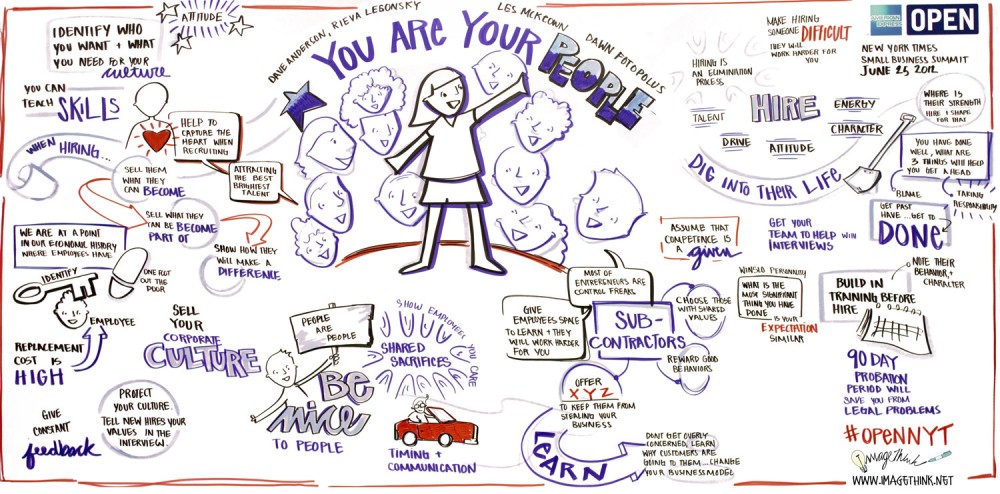 IDENTIFY WHO
YOU WANT + WHAT
YOU NEED FOR YOUR
culture
ATTITUDE
YOU CAN
TEACH SKILLS
WHEN HIRING...
HELP TO
CAPTURE THE
HEART WHEN
RECRUITING
SELL THEM
WHAT THEY
CAN BECOME
ATTRACTING
THE BEST
BRIGHTEST
TALENT
SELL WHAT THEY
CAN BE BECOME
PART OF
SHOW HOW THEY
WILL MAKE A
DIFFERENCE
WE ARE AT A POINT
IN OUR ECONOMIC HISTORY
WHERE EMPLOYEES HAVE
IDENTIFY
ONE FOOT
OUT THE
DOOR
EMPLOYEE
REPLACEMENT
COST IS
HIGH
SELL
YOUR
CORPORATE
CULTURE
GIVE
CONSTANT
feedback
PROTECT
YOUR CULTURE.
TELL NEW HIRES YOUR
VALUES IN THE
INTERVIEW.
DAVE ANDERSON, RIEVA LESONSKY
LES MCKEOWN
DAWN FOTOPOLUS
YOU ARE YOUR
PEOPLE
PEOPLE
ARE
PEOPLE
BE
nice
TO PEOPLE
SHOW EMPLOYEES YOU CARE
SHARED
SACRIFICES
TIMING +
COMMUNICATION
MOST OF
ENTREPRENEURS ARE
CONTROL FREAKS
GIVE
EMPLOYEES SPACE
TO LEARN + THEY
WILL WORK HARDER
FOR YOU
SUB-
CONTRACTORS
CHOOSE THOSE
WITH SHARED
VALUES
REWARD GOOD
BEHAVIORS
OFFER
XYZ
TO KEEP THEM FROM
STEALING YOUR
BUSINESS
LEARN
DON'T GET OVERLY
CONCERNED, LEARN
WHY CUSTOMERS ARE
GOING TO THEM...CHANGE
YOUR BUSINESS MODEL
MAKE HIRING
SOMEONE DIFFICULT
THEY WILL
WORK HARDER FOR
YOU
HIRING IS
AN ELIMINATION
PROCESS
TALENT
HIRE
ENERGY
CHARACTER
DRIVE
ATTITUDE
DIG INTO THEIR LIFE
AMERICAN EXPRESS
OPEN
NEW YORK TIMES
SMALL BUSINESS SUMMIT
JUNE 25 2012
WHERE IS
THEIR STRENGTH
HIRE + SHAPE
FOR THAT
YOU HAVE DONE
WELL, WHAT ARE
3 THINGS WILL HELP
YOU GET AHEAD
BLAME
TAKING
RESPONSIBILITY
GET PAST
HAVE...GET TO
DONE
ASSUME THAT
COMPETENCE IS
A given
GET YOUR
TEAM TO HELP WITH
INTERVIEWS
PERSONALITY
WHAT IS THE
MOST SIGNIFICANT
THING YOU HAVE
DONE
IS YOUR
EXPECTATION
SIMILAR
BUILD IN
TRAINING BEFORE
HIRE
NOTE THEIR
BEHAVIOR +
CHARACTER
90 DAY
PROBATION
PERIOD WILL
SAVE YOU FROM
LEGAL PROBLEMS
#OPENNYT
ImageThink
WWW.IMAGETHINK.NET